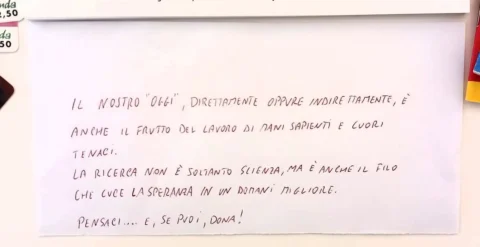 nda
.50
da
50
IL NOSTRO "OGGI", DIRETTAMENTE OPPURE INDIRETTAMENTE, È
ANCHE IL FRUTTO DEL LAVORO DI MANI SAPIENTI E CUORI
TENACI.
LA RICERCA NON È SOLTANTO SCIENZA, MA È ANCHE IL FILO
CHE CUCE LA SPERANZA IN UN DOMANI MIGLIORE.
PENSACI.... E, SE PUOI, DONA!